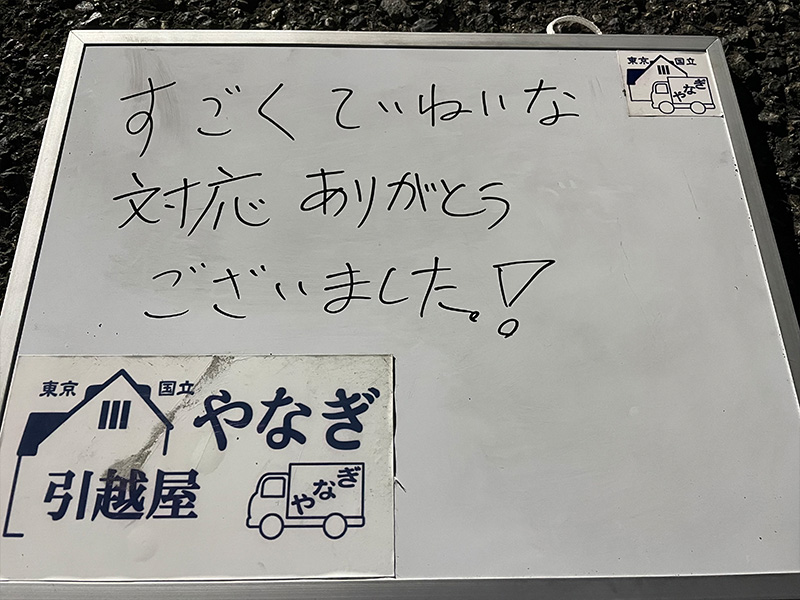 すごくていねいな
対応ありがとう
ございました。!
東京 国立
やなぎ
東京 国立
やなぎ
引越屋
やなぎ